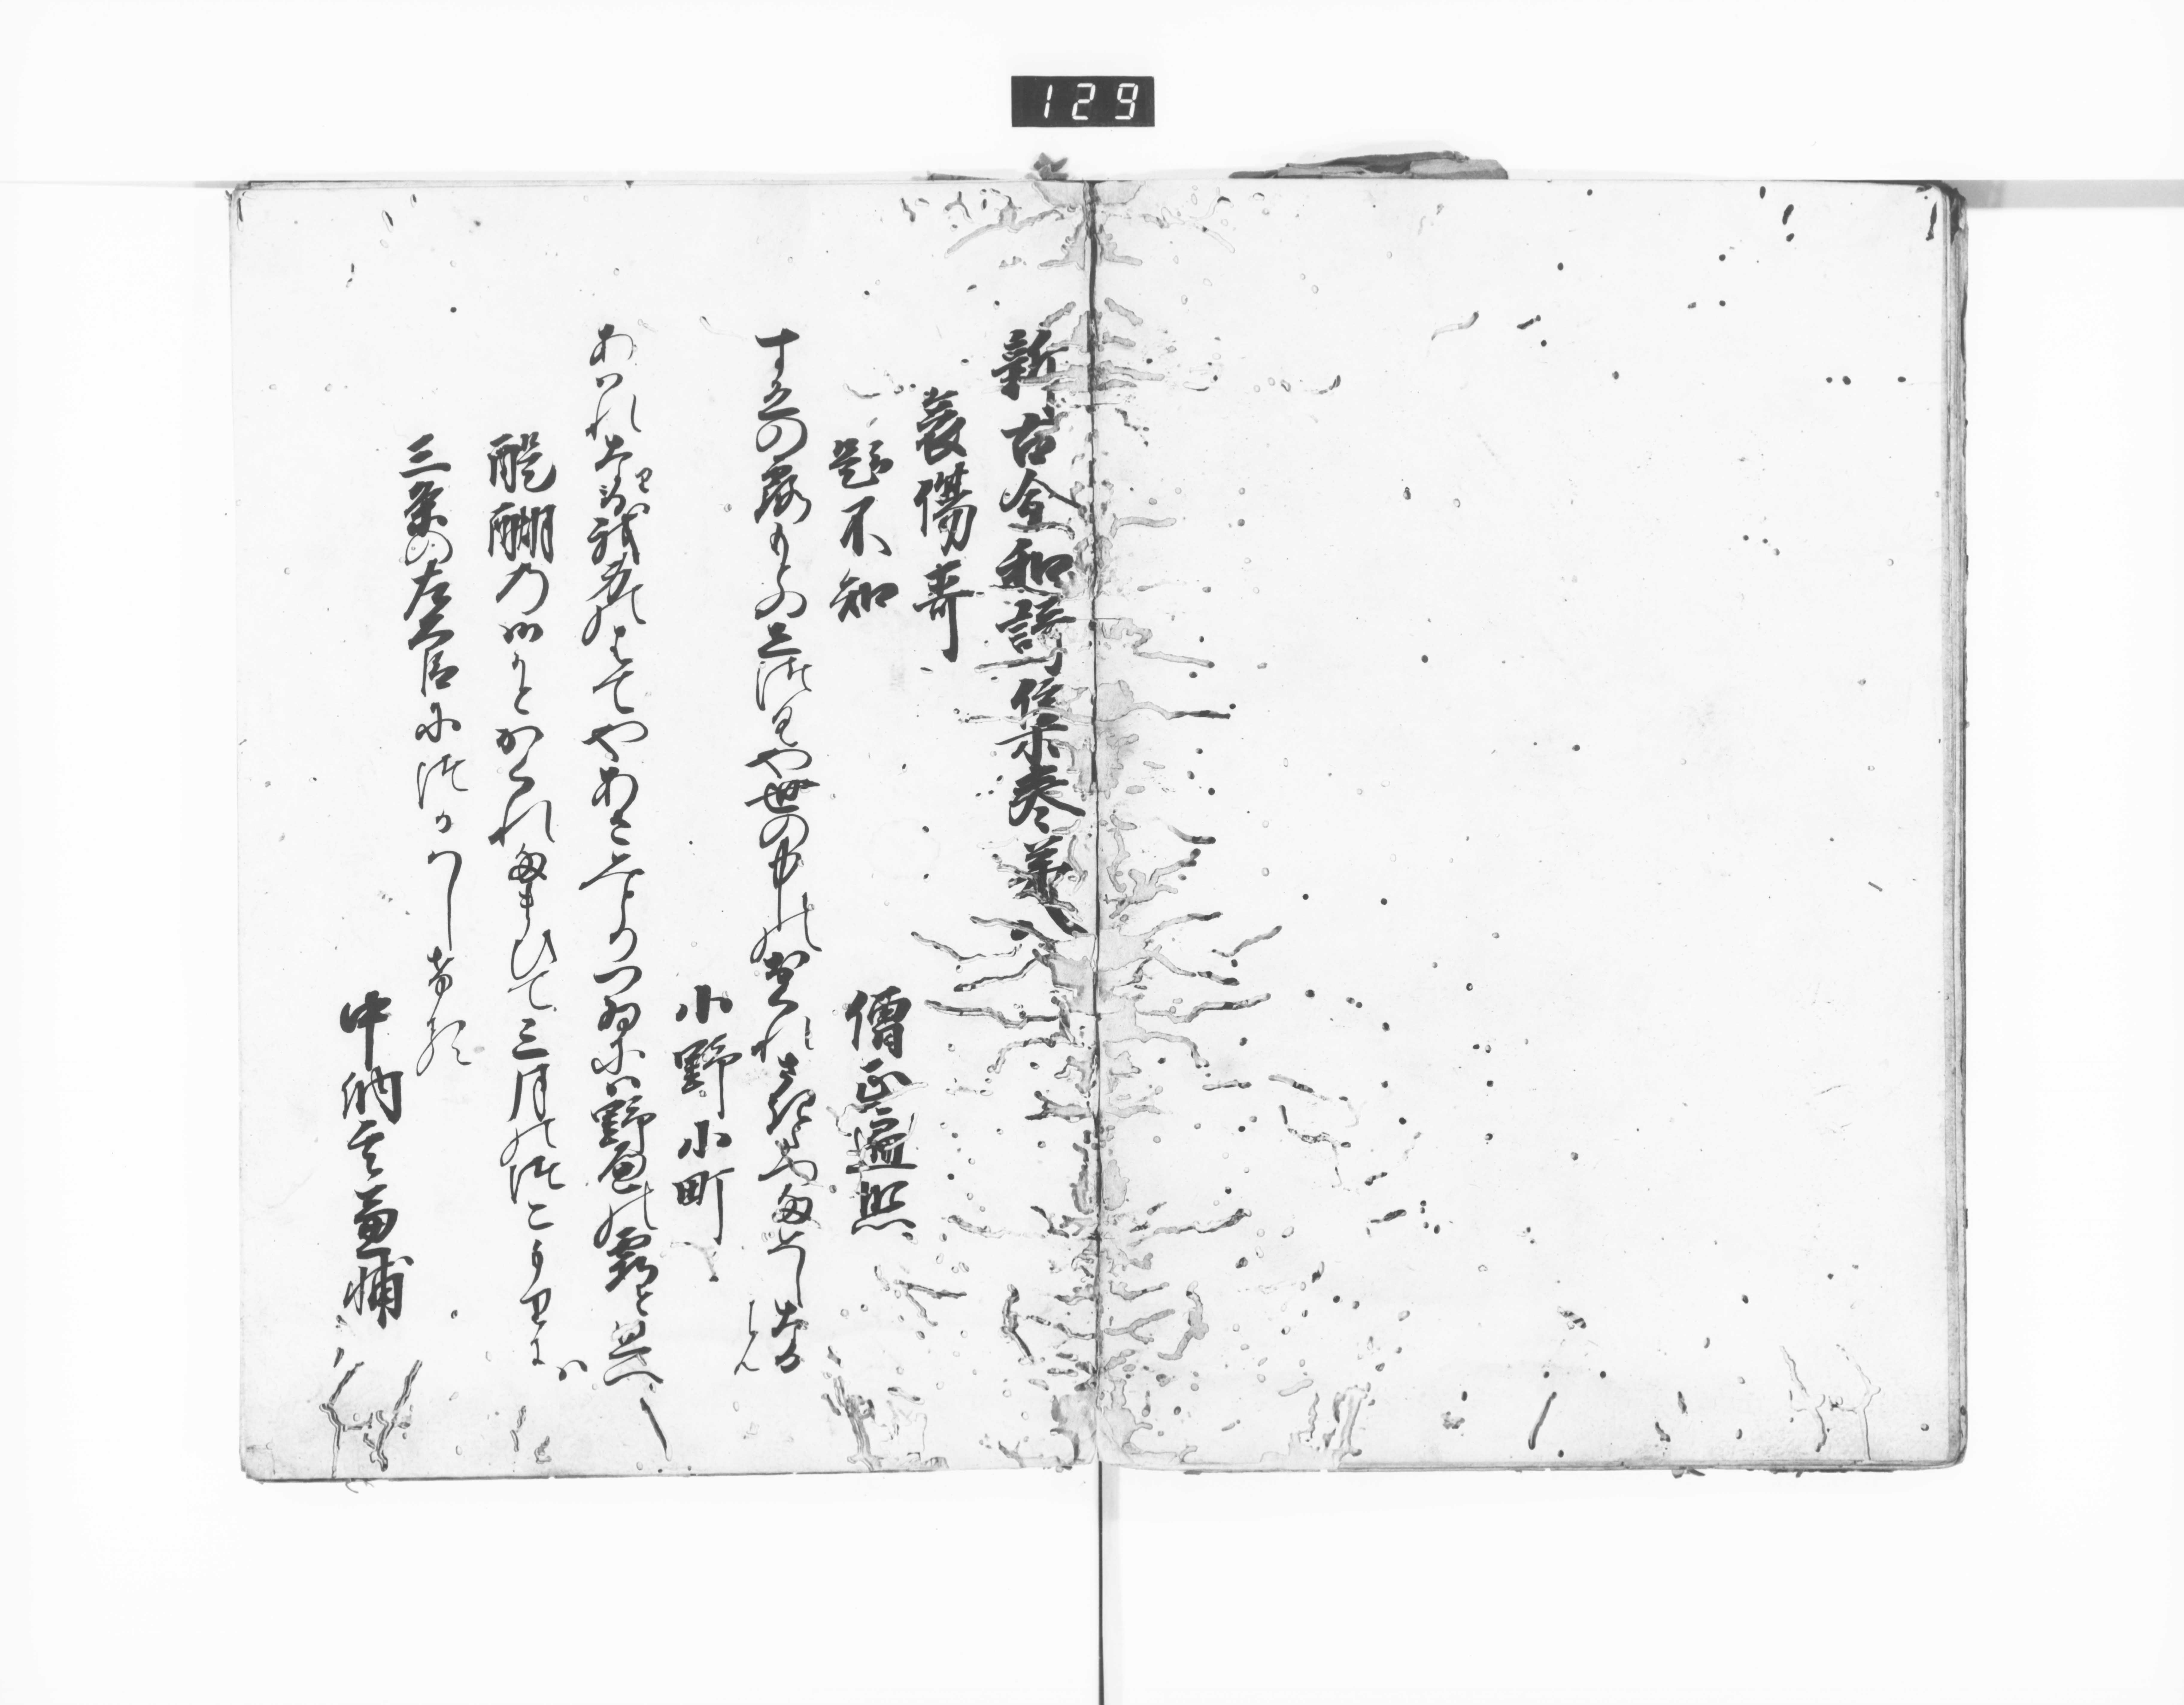 129
新古今和謌集巻第八
哀傷哥
題不知
僧正遍照
すゑの露もとのしつくや世の中のをくれさきたつためしなるらん
小野小町
あはれなりわか身のはてやあさみとりつゐには野邊の霞と思へは
醍醐のみかとかくれたまひて三月のつこもりに
三条の右大臣につかはしける
中納言兼輔